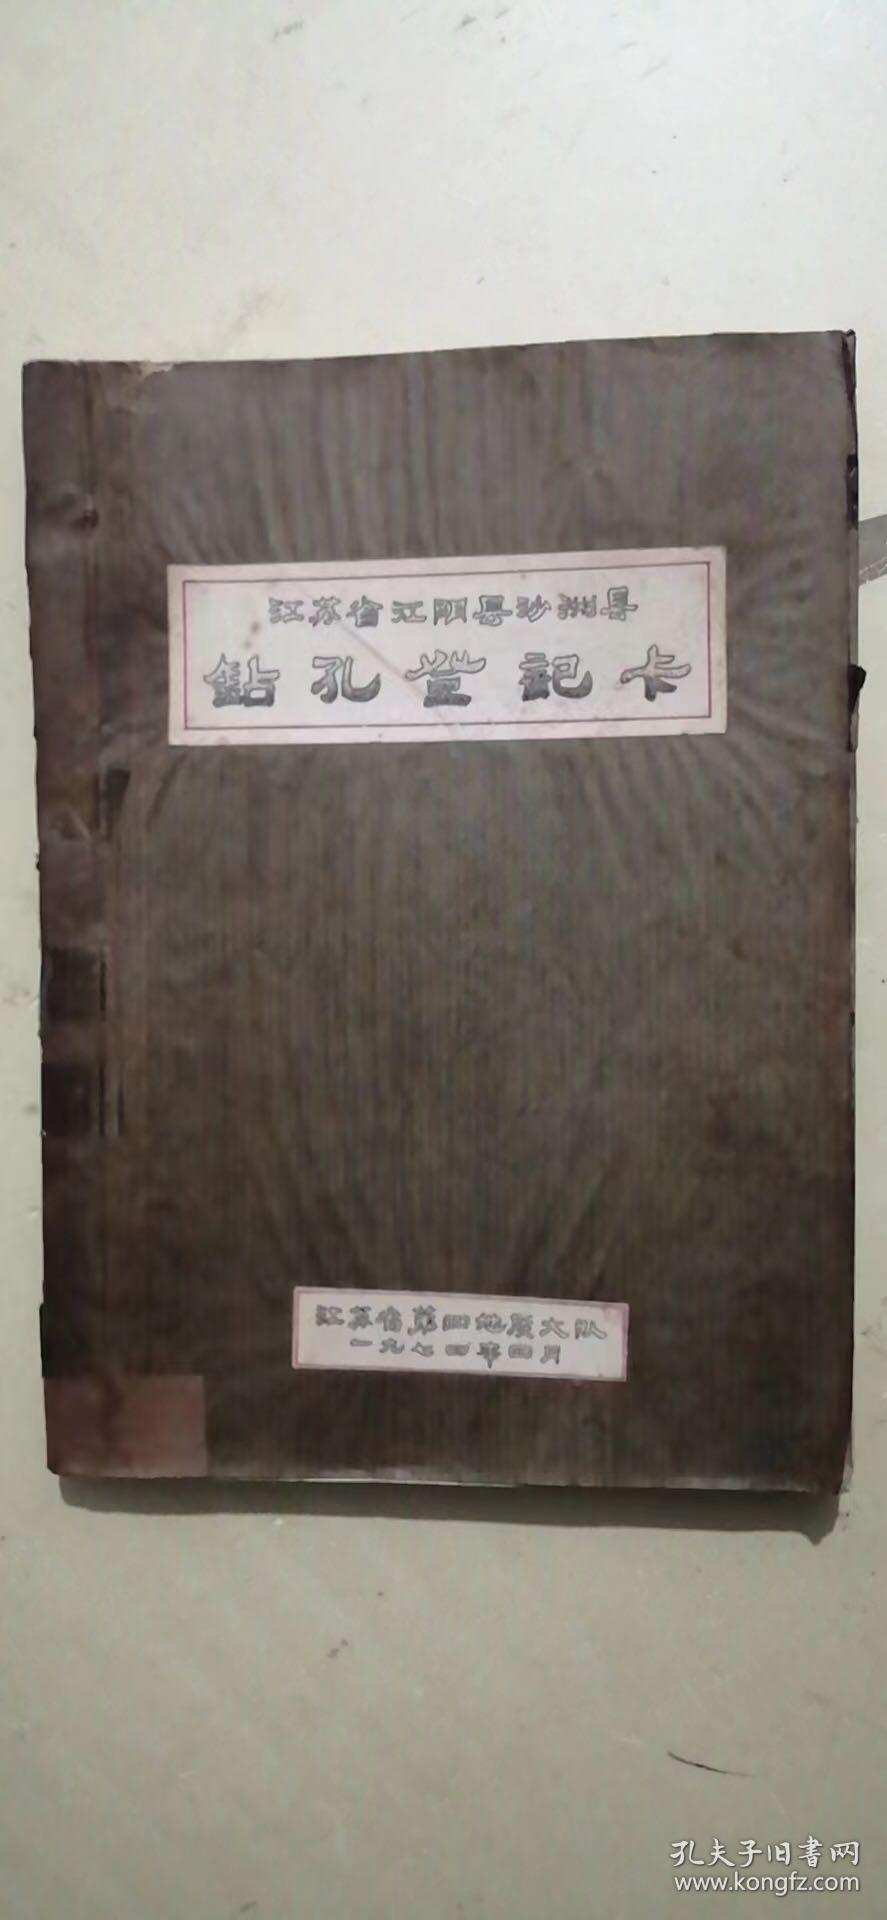 江苏省江阴县沙洲县
鉆孔登记卡
江苏省第四地质大队
一九七四年四月
孔夫子旧書网
www.kongfz.com